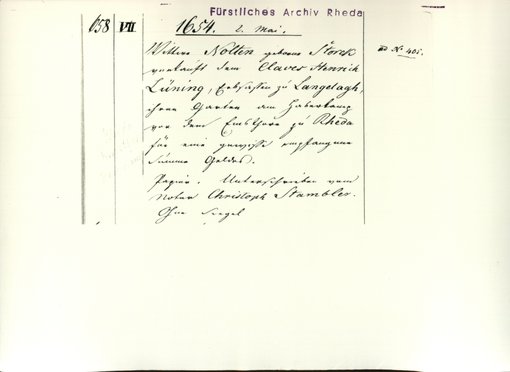 Fürstliches Archiv Rheda
658 VII 1654. 2. Mai.
Wittwe Nolten geborene Storck ad No 405.
verkauft dem Claves Henrich
Lüning, Erbsassen zu Langelagh,
ihren Garten am Haberkamp
vor dem Emsthore zu Rheda
für eine gewisse empfangene
Summe Geldes.
Papier. Unterschrieben vom
Notar Christoph Stambler.
Ohne Siegel